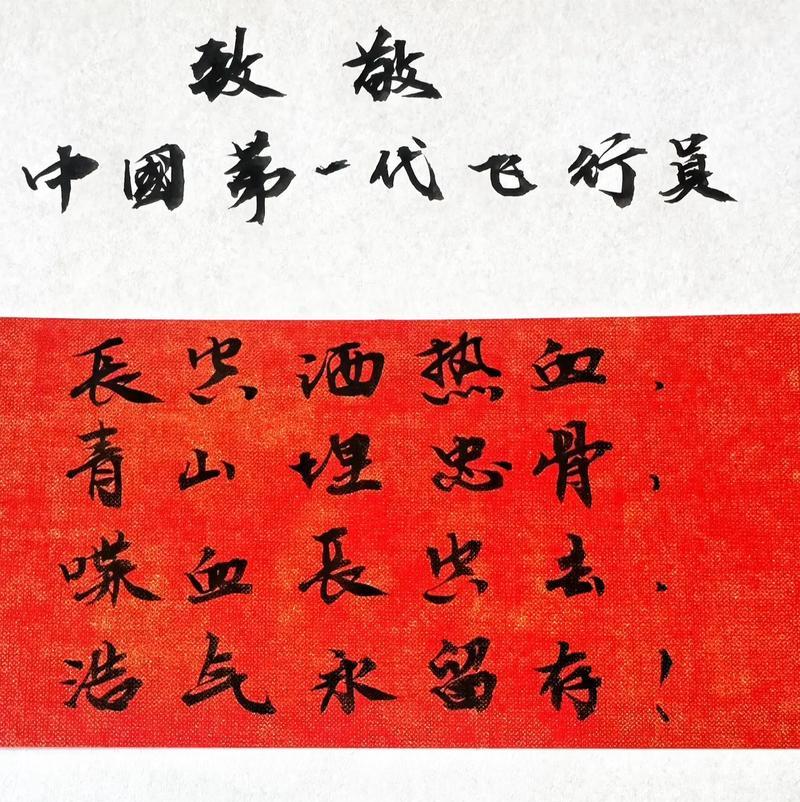 致敬
中國第一代飞行員
長空洒热血,
青山埋忠骨,
喋血長空去,
浩气永留存!